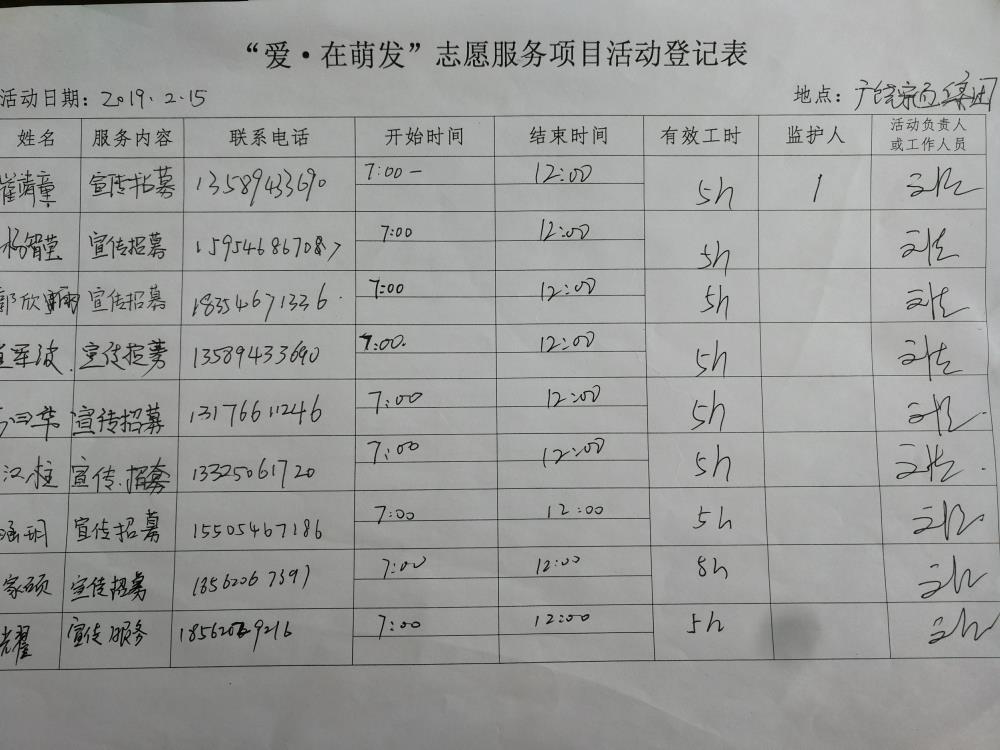 “爱·在萌发”志愿服务项目活动登记表
活动日期：2019.2.15 地点：
姓名 服务内容 联系电话 开始时间 结束时间 有效工时 监护人 活动负责人或工作人员
崔靖童 宣传招募 13589433690 7:00- 12:00 5h 1
杨智莹 宣传招募 15954686708 7:00 12:00 5h
郭欣 宣传招募 18354671336 7:00 12:00 5h
军波 宣传招募 13589433690 7:00 12:00 5h
宣传招募 13176611246 7:00 12:00 5h
汉柱 宣传招募 13325061720 7:00 12:00 5h
玥 宣传招募 15505467186 7:00 12:00 5h
家硕 宣传招募 18562067397 7:00 12:00 8h
耀 宣传服务 7:00 12:00 5h